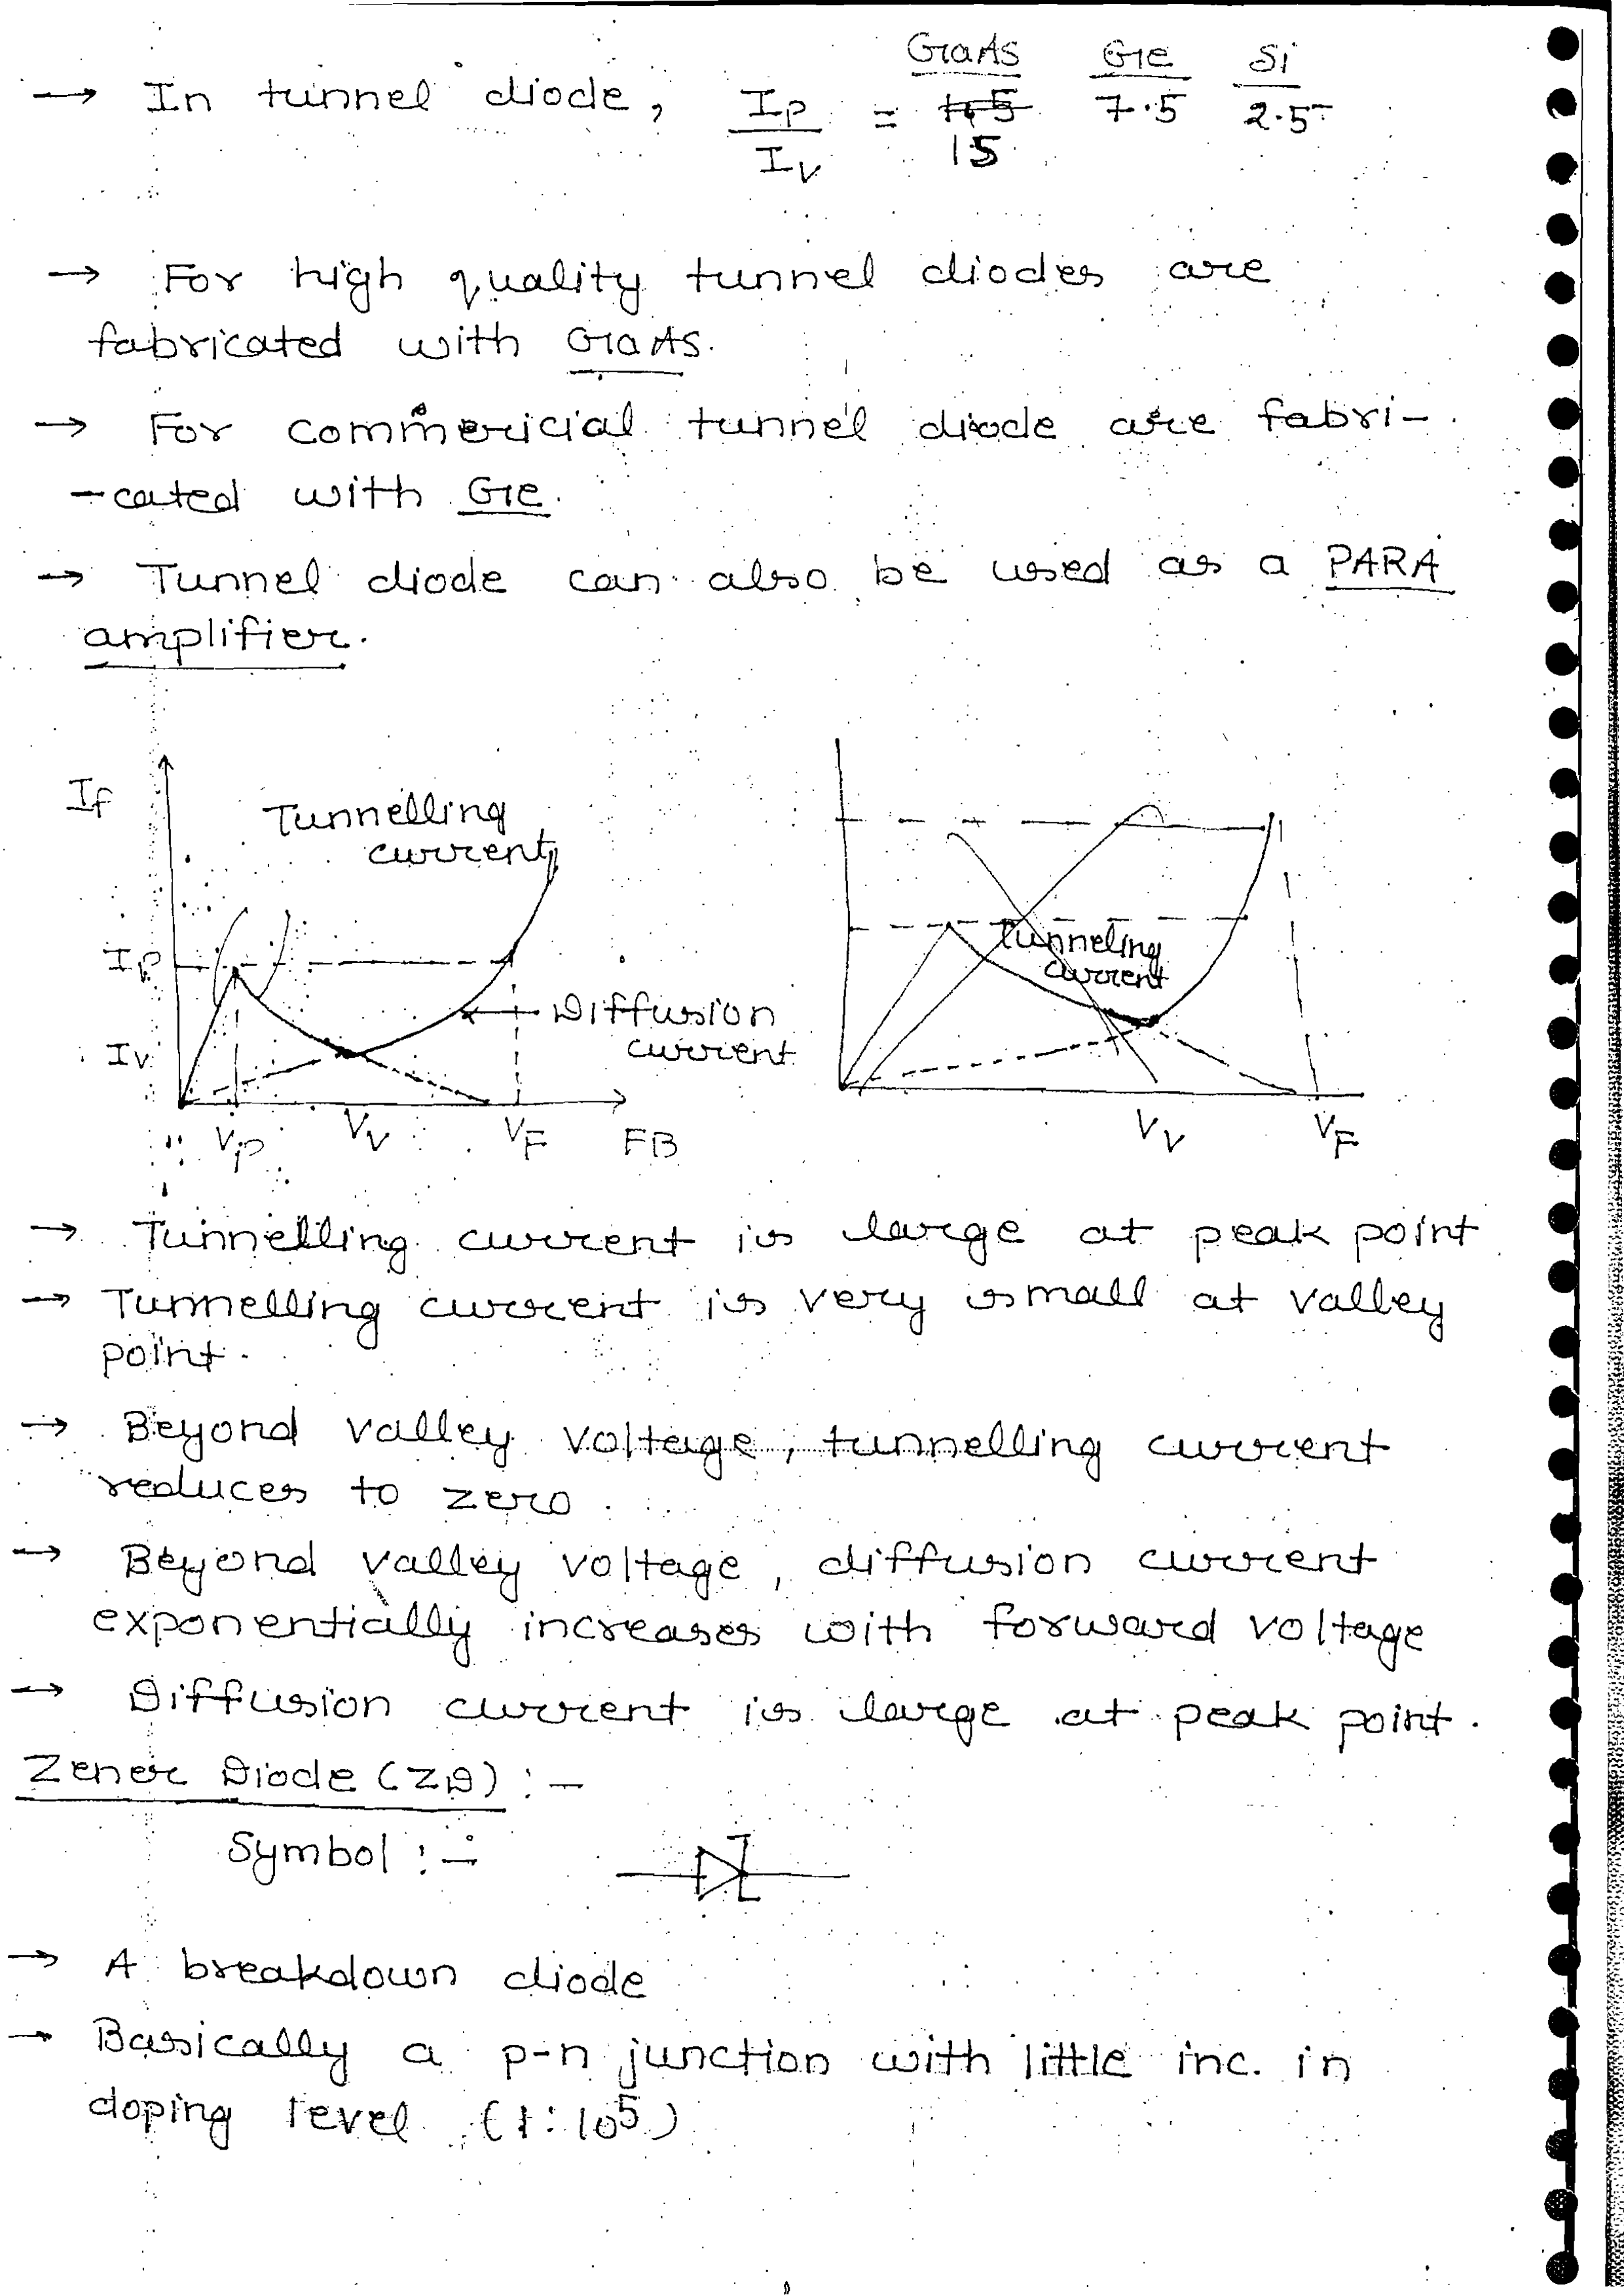 GaAs Ge Si
→ In tunnel diode, Ip/Iv = 7.5 2.5
15
→ For high quality tunnel diodes are
fabricated with GaAs.
→ For commericial tunnel diode are fabri-
-cated with Ge.
→ Tunnel diode can also be used as a PARA
amplifier.
If
Tunnelling
current
Ip
Diffusion
current
Iv
Vp Vv VF FB
Tunneling
current
Vv VF
→ Tunnelling current is large at peak point
→ Tunnelling current is very small at valley
point.
→ Beyond valley voltage, tunnelling current
reduces to zero.
→ Beyond valley voltage, diffusion current
exponentially increases with forward voltage
→ Diffusion current is large at peak point.
Zener Diode (ZD) :-
Symbol :-
→ A breakdown diode
→ Basically a p-n junction with little inc. in
doping level (1:10⁵)